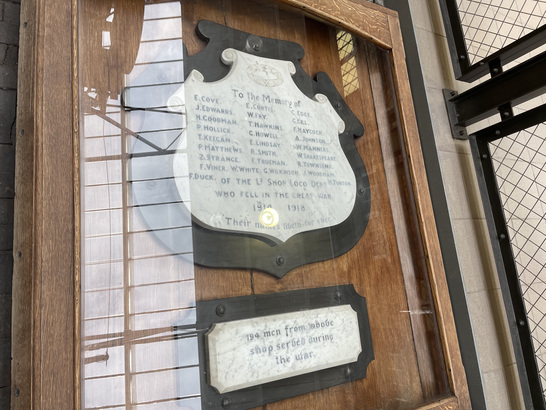 To the Memory of
E. COVE. E. CURTIS. C. EDGE.
J. EDWARDS. W. FAY. C. GEE.
H. GOODMAN. T. HAWKINS. F. HAYCOCK.
P. HOLLICK. G. HOWELL. A. JOHNSON.
T. KEEGAN. E. LINDSAY. W. MANNING.
P. MATTHEWS. R. SMITH. W. SHAKESPEARE.
J. STRANGE. F. TRUEMAN. R. TOWNSEND.
F. VINER. W. WHITE. G. WARNER. S. WOODMAN.
F. BUCK. OF THE Lt SHOP LOCO DEPt H. TURTON
WHO FELL IN THE GREAT WAR.
1914 1918
Their names liveth for ever.
194 men from above
shop served during
the war.